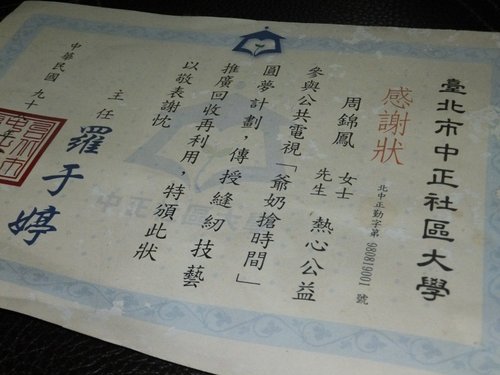 臺北市中正社區大學
感謝狀
北中正勤字第 980819001 號
周錦鳳 女士 先生 熱心公益
參與公共電視「爺奶搶時間」
圓夢計劃,傳授縫紉技藝
推廣回收再利用,特頒此狀
以敬表謝忱
主任 羅于婷
中華民國 九十